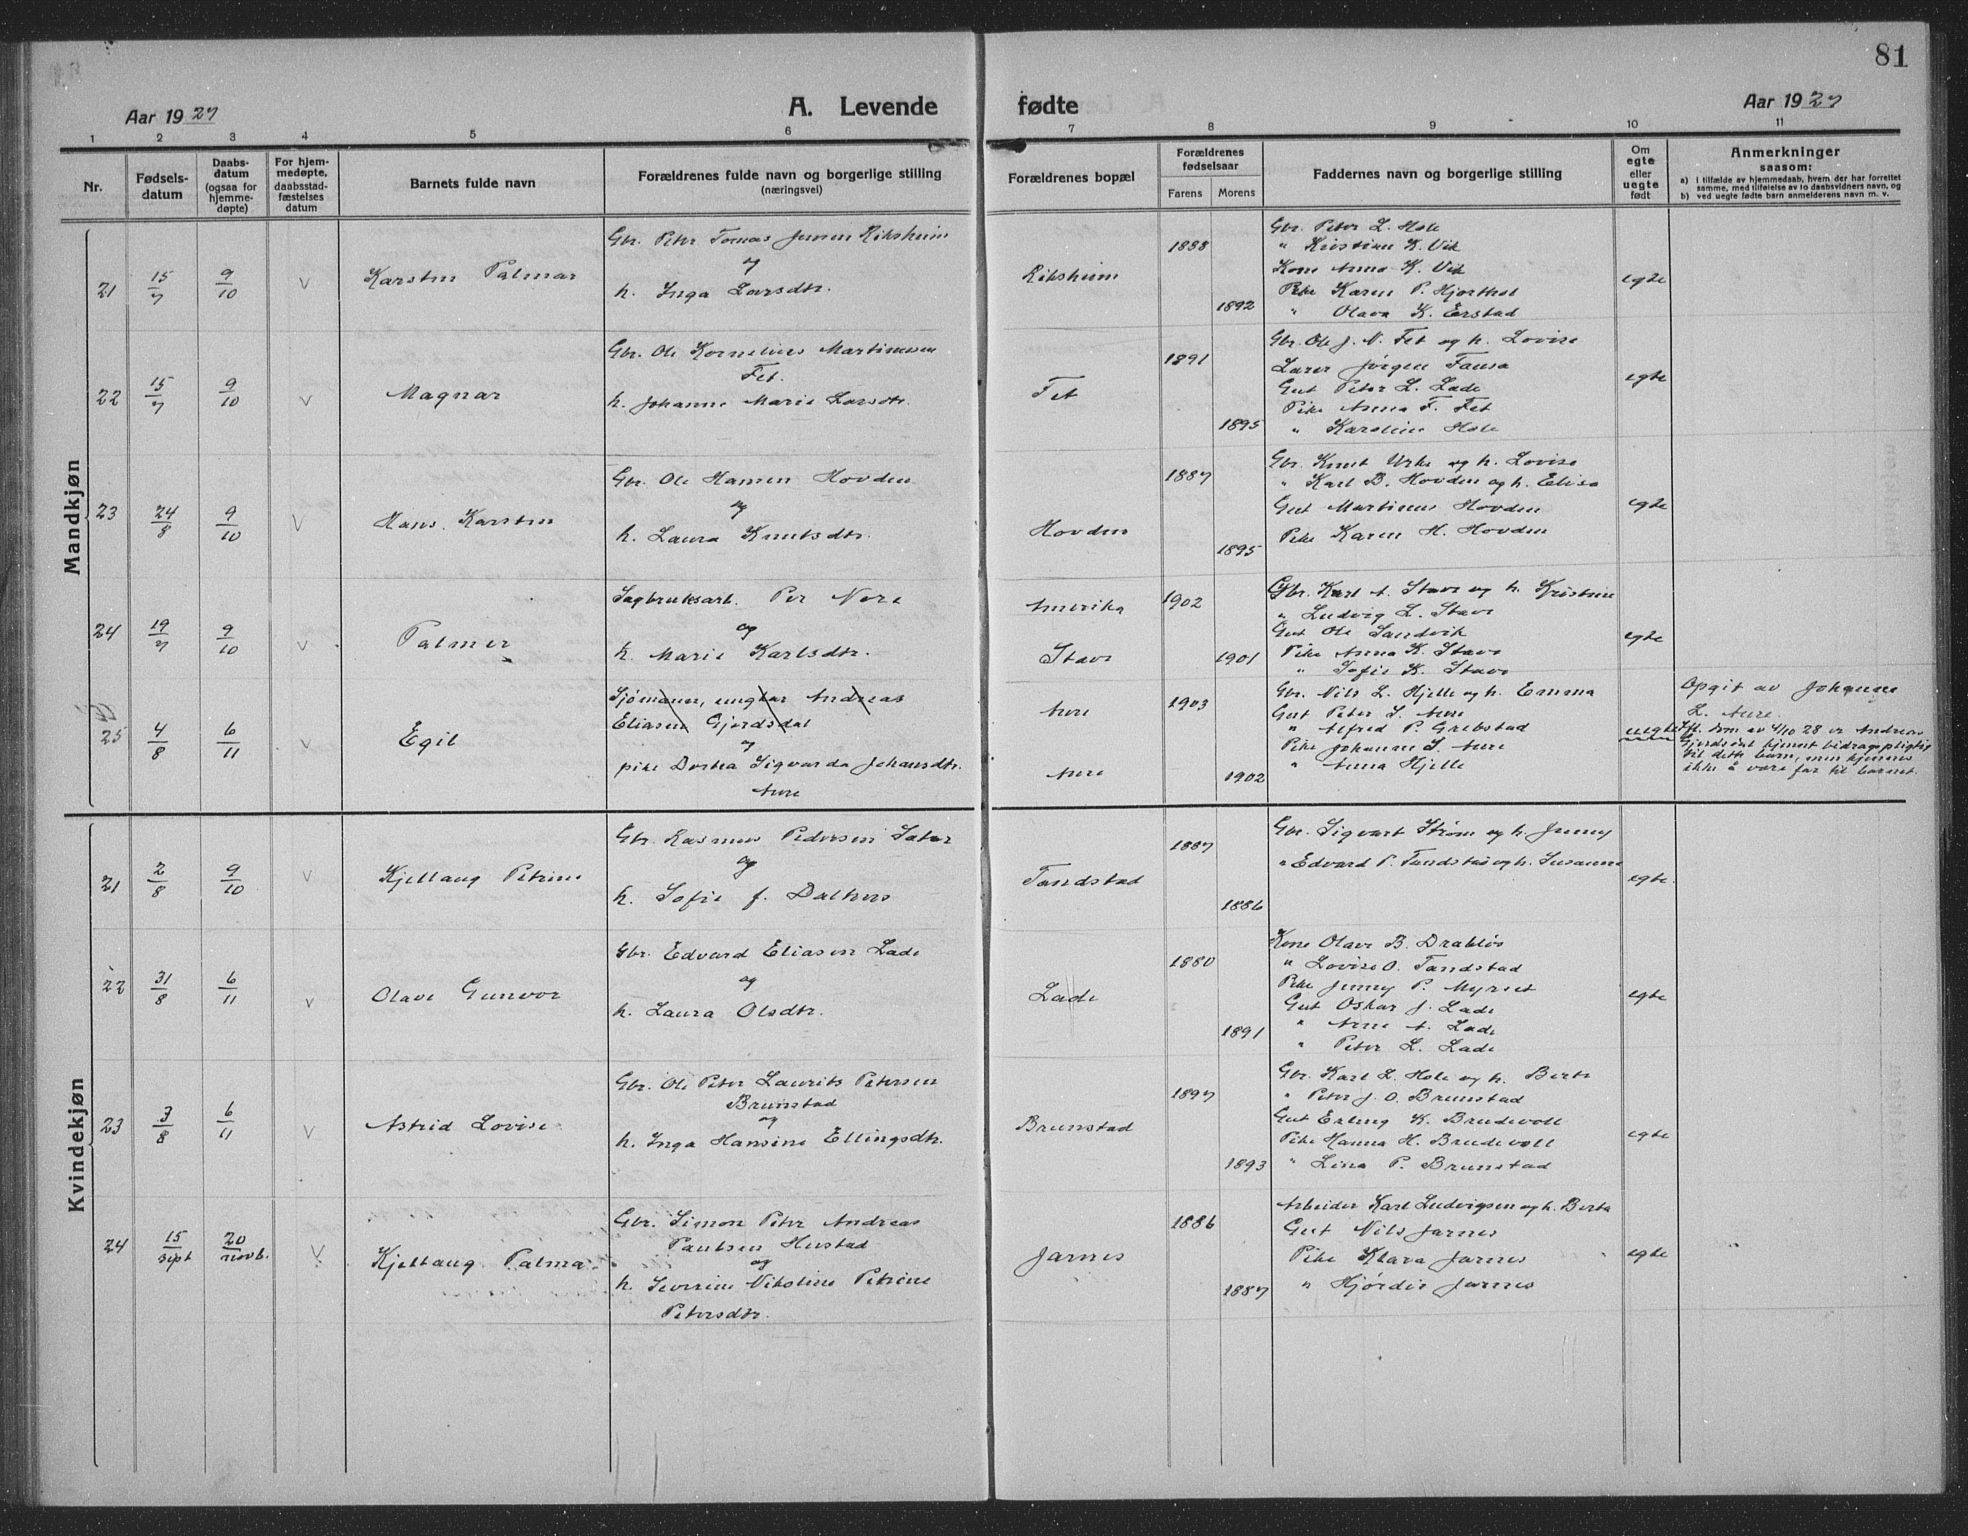 81
Aar 1927
A. Levende fødte
Aar 1927
1 2 3 4 5 6 7 8 9 10 11
Nr.
Fødsels-
datum
Daabs-
datum
(ogsaa for
hjemme-
døpte)
For hjem-
medøpte,
daabsstad-
fæstelses
datum
Barnets fulde navn
Forældrenes fulde navn og borgerlige stilling
(næringsvei)
Forældrenes bopæl
Forældrenes
fødselsaar
Farens Morens
Faddernes navn og borgerlige stilling
Om
egte
eller
uegte
født
Anmerkninger
saasom:
a) I tilfælde av hjemmedaab, hvem der har forrettet
samme, med tilføielse av to daabsvidners navn, og
b) ved uegte fødte barn anmelderens navn m. v.
Mandkjøn
21 15/7 9/10 v Karsten Palmar
Gbr. Peter Tomas Jensen Riksheim
og
h. Inga Larsdtr.
Riksheim 1888 1892
Gbr. Peter L. Hole
" Kristian K. Vik
Kone Anna K. Vik
Pike Karen P. Hjorthol
" Olava K. Erstad
egte
22 15/7 9/10 v Magnar
Gbr. Ole Kornelius Martinusen
Fet.
h. Johanne Marie Larsdtr.
Fet 1891 1895
Gbr. Ole J. N. Fet og h. Lovise
Lærer Jørgen Tansa
Gut Peter L. Lade
Pike Anna F. Fet
" Karoline Hole
egte
23 24/8 9/10 v Hans Karsten
Gbr. Ole Hansen Hovden
og
h. Laura Knutsdtr.
Hovden 1887 1895
Gbr. Knut Urke og h. Lovise
" Karl B. Hovden og h. Elise
Gut Martinus Hovden
Pike Karen H. Hovden
egte
24 19/7 9/10 v Palmer
Sagbruksarb. Per Nere
og
h. Marie Karlsdtr.
Amerika
Stave
1902 1901
Gbr. Karl A. Stave og h. Kristine
" Ludvig L. Stave
Gut Ole Sandvik
Pike Anna K. Stave
" Sofie K. Stave
egte
25 4/8 6/11 v Egil
Sjømann, ungkar Andreas
Eliasen Gjerdsdal
og
pike Dortea Sigvarda Johansdtr.
Aure
Aure
Aure
1903 1902
Gbr. Nils L. Hjelle og h. Emma
Gut Peter S. Aure
" Alfred P. Grebstad
Pike Johanne S. Aure
" Anna Hjelle
uegte
Opgit av Johanne
L. Aure.
Ift. dom av 4/10 28 er Andreas
kjent bidragspligtig
til dette barn, men kjennes
ikke å være far til barnet.
Kvindekjøn
21 2/8 9/10 v Kjellaug Petrine
Gbr. Rasmus Pedersen Sæter
og
h. Sofie f. Dalhus
Tandstad 1887 1886
Gbr. Sigvart Strøm og h. Jenny
" Edvard P. Tandstad og h. Susanne
egte.
22 31/8 6/11 v Olave Gunvor
Gbr. Edvard Eliasen Lade
og
h. Laura Olsdtr.
Lade 1880 1891
Kone Olave B. Drabløs
" Lovise O. Tandstad
Pike Jenny P. Myrset
Gut Oskar J. Lade
" Arne A. Lade
" Peter L. Lade
egte
23 3/8 6/11 v Astrid Lovise
Gbr. Ole Peter Laurits Petersen
Brunstad
og
h. Inga Hansine Ellingsdtr.
Brunstad 1897 1893
Gbr. Karl L. Hole og h. Berte
" Peter J. O. Brunstad
Gut Erling K. Brudevoll
Pike Hanna H. Brudevoll
" Lina P. Brunstad
egte
24 15/sept 20/novb. v Kjellaug Palma
Gbr. Simon Peter Andreas
Paulsen Hustad
og
h. Severine Nikoline Petrine
Petersdtr.
Jarnes 1886 1887
Arbeider Karl Ludvigsen og h. Berta
Gut Nils Jarnes
Pike Klara Jarnes
" Hjørdis Jarnes
egte